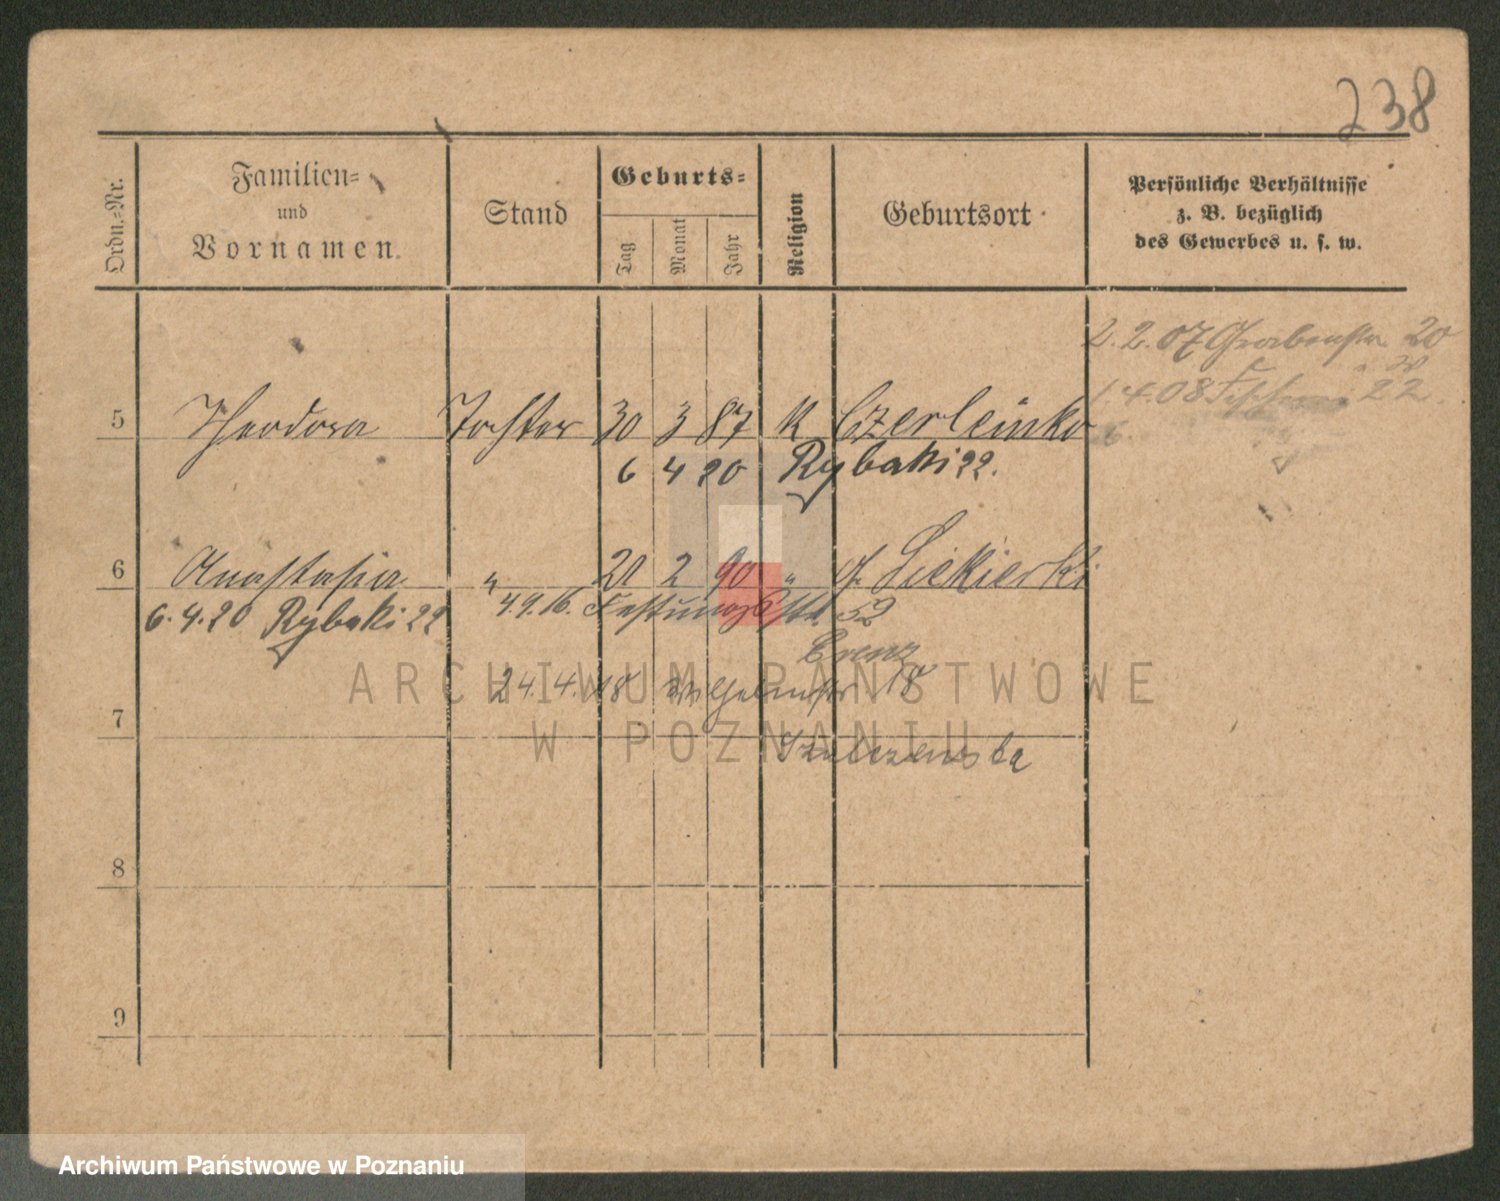 238
Ordn.-Nr.
Familien-
und
Vornamen.
Stand
Geburts-
Tag
Monat
Jahr
Religion
Geburtsort
Persönliche Verhältnisse
z. B. bezüglich
des Gewerbes u. s. w.
2.2.07 Grabenstr 20
1.4.08 22
5 Theodora Tochter 30 3 87 K Czerleinko
6 4 20 Rybaki 22.
6 Anastasia " 20 2 90 " Siekierki
6.4.20 Rybaki 22
4.9.16. Festungsstr 52
24.4.18 Wilhelmstr. 18
7
8
9
ARCHIWUM PAŃSTWOWE
W POZNANIU
Archiwum Państwowe w Poznaniu